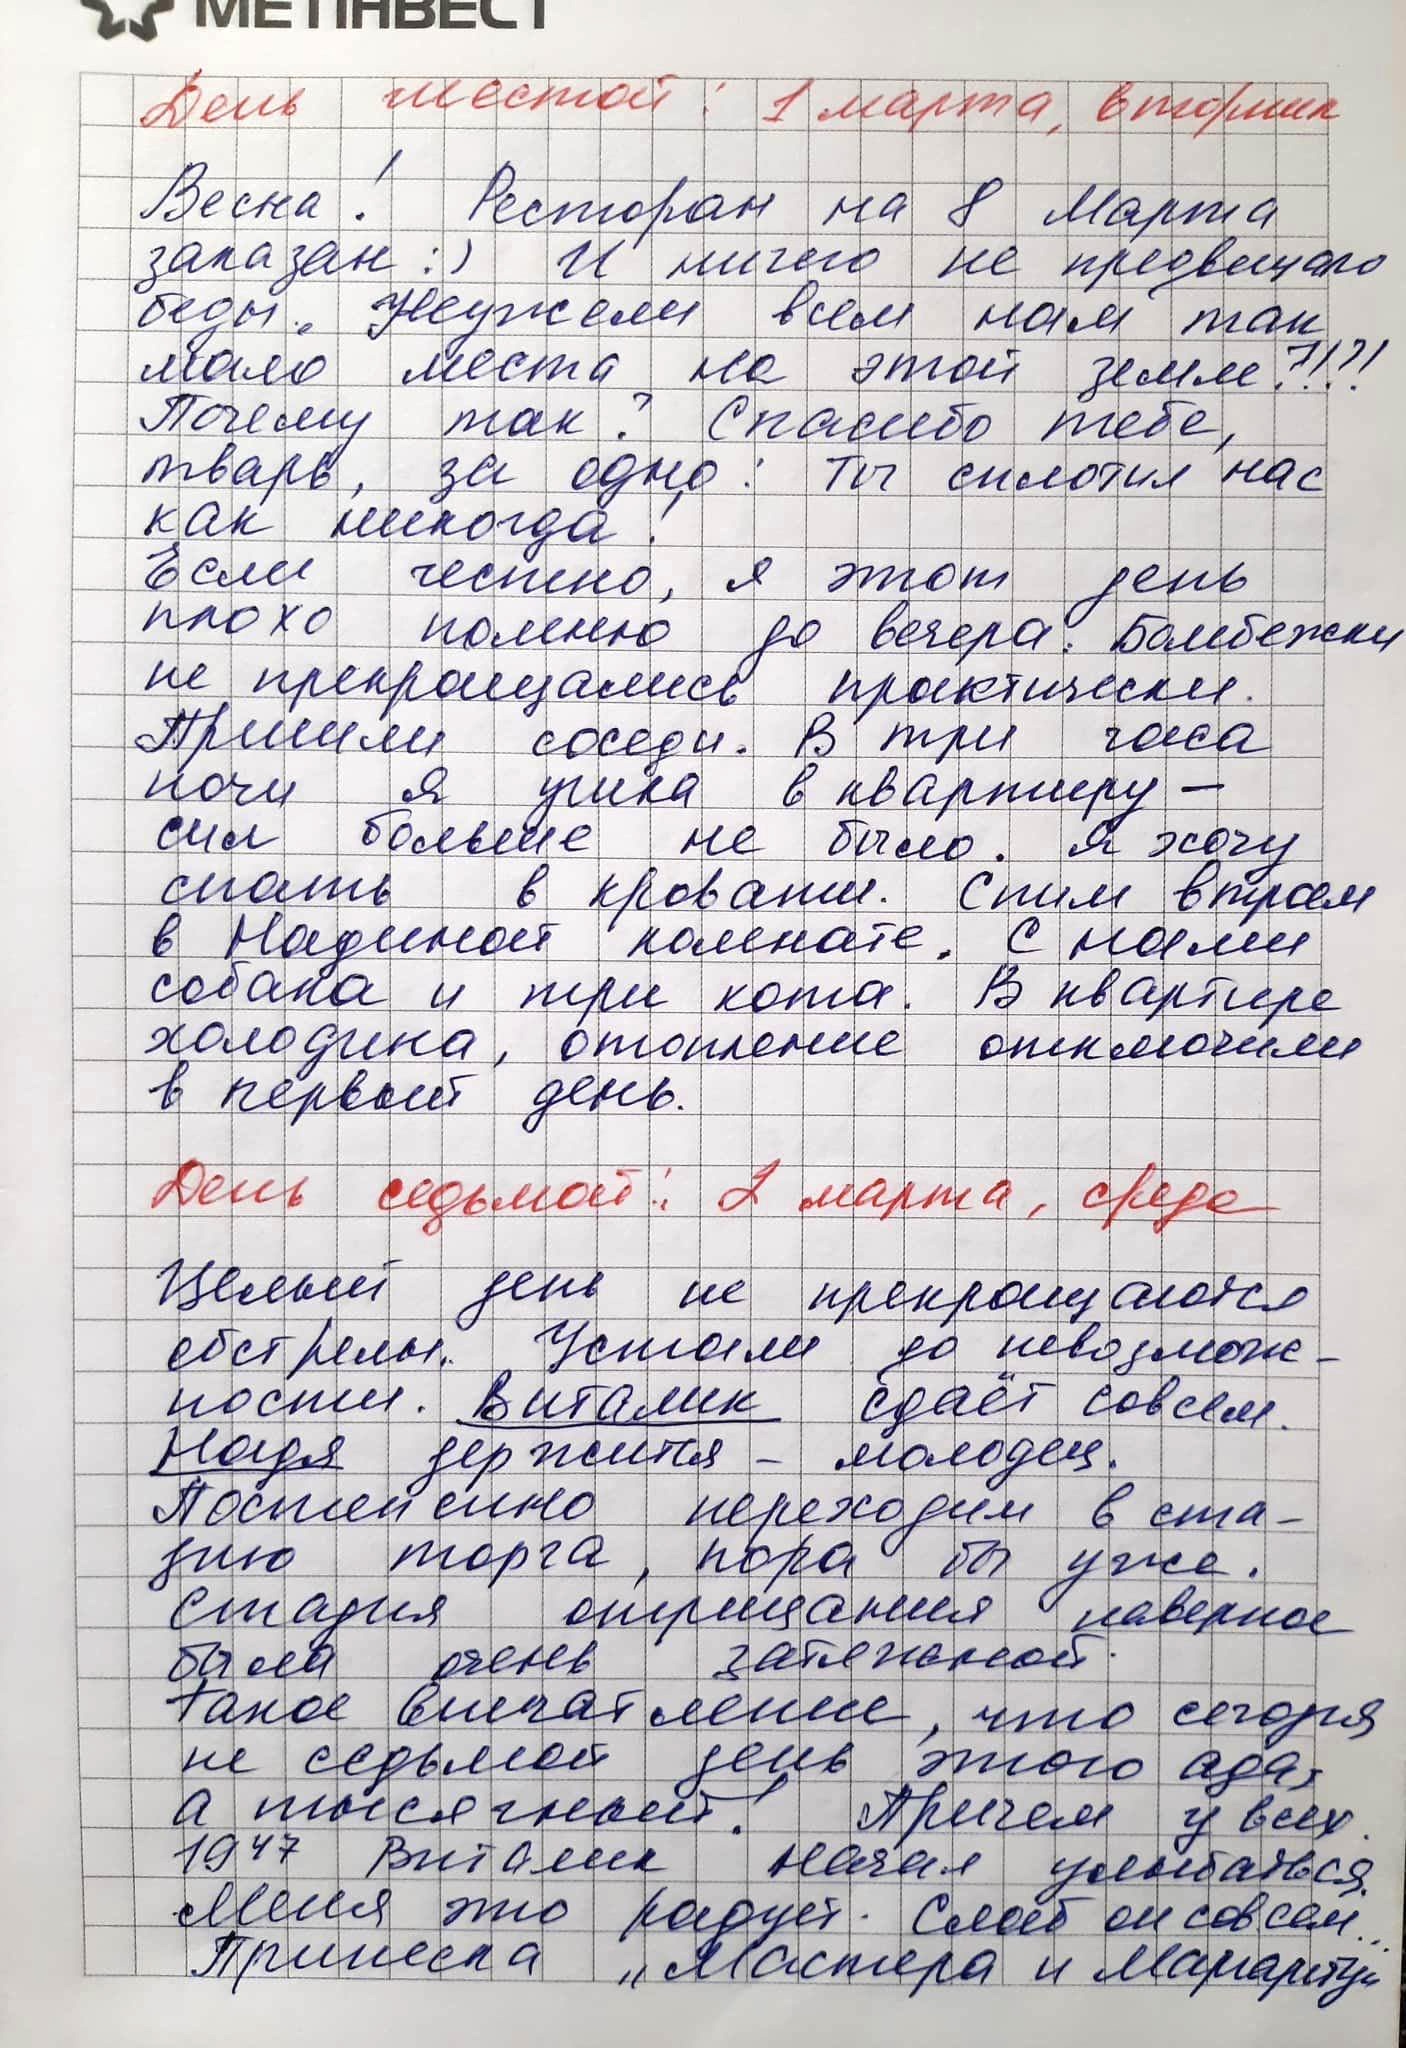 МЕТІНВЕСТ
День шестой: 1 марта, вторник
Весна! Ресторан на 8 Марта
заказан :) И ничего не предвещало
беды. Неужели всем нам так
мало места на этой земле?!?!
Почему так? Спасибо тебе,
тварь, за одно: Ты сплотил нас
как никогда!
Если честно, я этот день
плохо помню до вечера. Бомбежки
не прекращались практически.
Пришли соседи. В три часа
ночи я ушла в квартиру –
сил больше не было. Я хочу
спать в кровати. Спим втроем
в Надиной комнате. С нами
собака и три кота. В квартире
холодина, отопление отключили
в первый день.
День седьмой: 2 марта, среда
Целый день не прекращаются
обстрелы. Устали до невозмож-
ности. Виталик сдаёт совсем.
Надя держится – молодец.
Постепенно переходим в ста-
дию торга, пора бы уже.
Стадия отрицания наверное
была очень затяжной.
Такое впечатление, что сегодня
не седьмой день этого ада,
а тысячный! Причем у всех.
19 47 Виталик начал улыбаться.
Меня это радует. Слаб он совсем...
Принесла „Мастера и Маргариту"